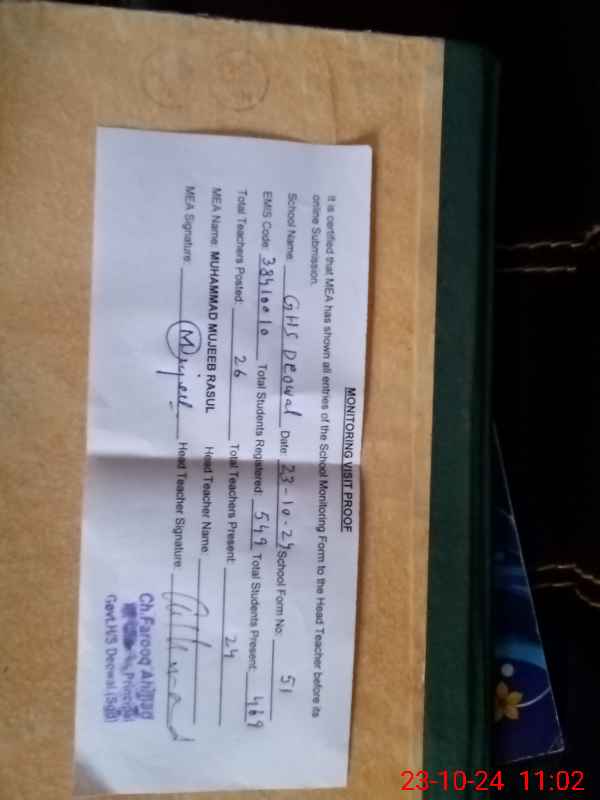 MONITORING VISIT PROOF
It is certified that MEA has shown all entries of the School Monitoring Form to the Head Teacher before its
online Submission.
School Name: GHS Deowal Date: 23-10-24 School Form No: 51
EMIS Code: 38410010 Total Students Registered: 549 Total Students Present: 469
Total Teachers Posted: 26 Total Teachers Present: 24
MEA Name: MUHAMMAD MUJEEB RASUL Head Teacher Name:
MEA Signature: Mujeeb Head Teacher Signature:
Ch.Farooq Ahmad
Principal
Govt.H/S Deowal (Sgd)
23-10-24 11:02